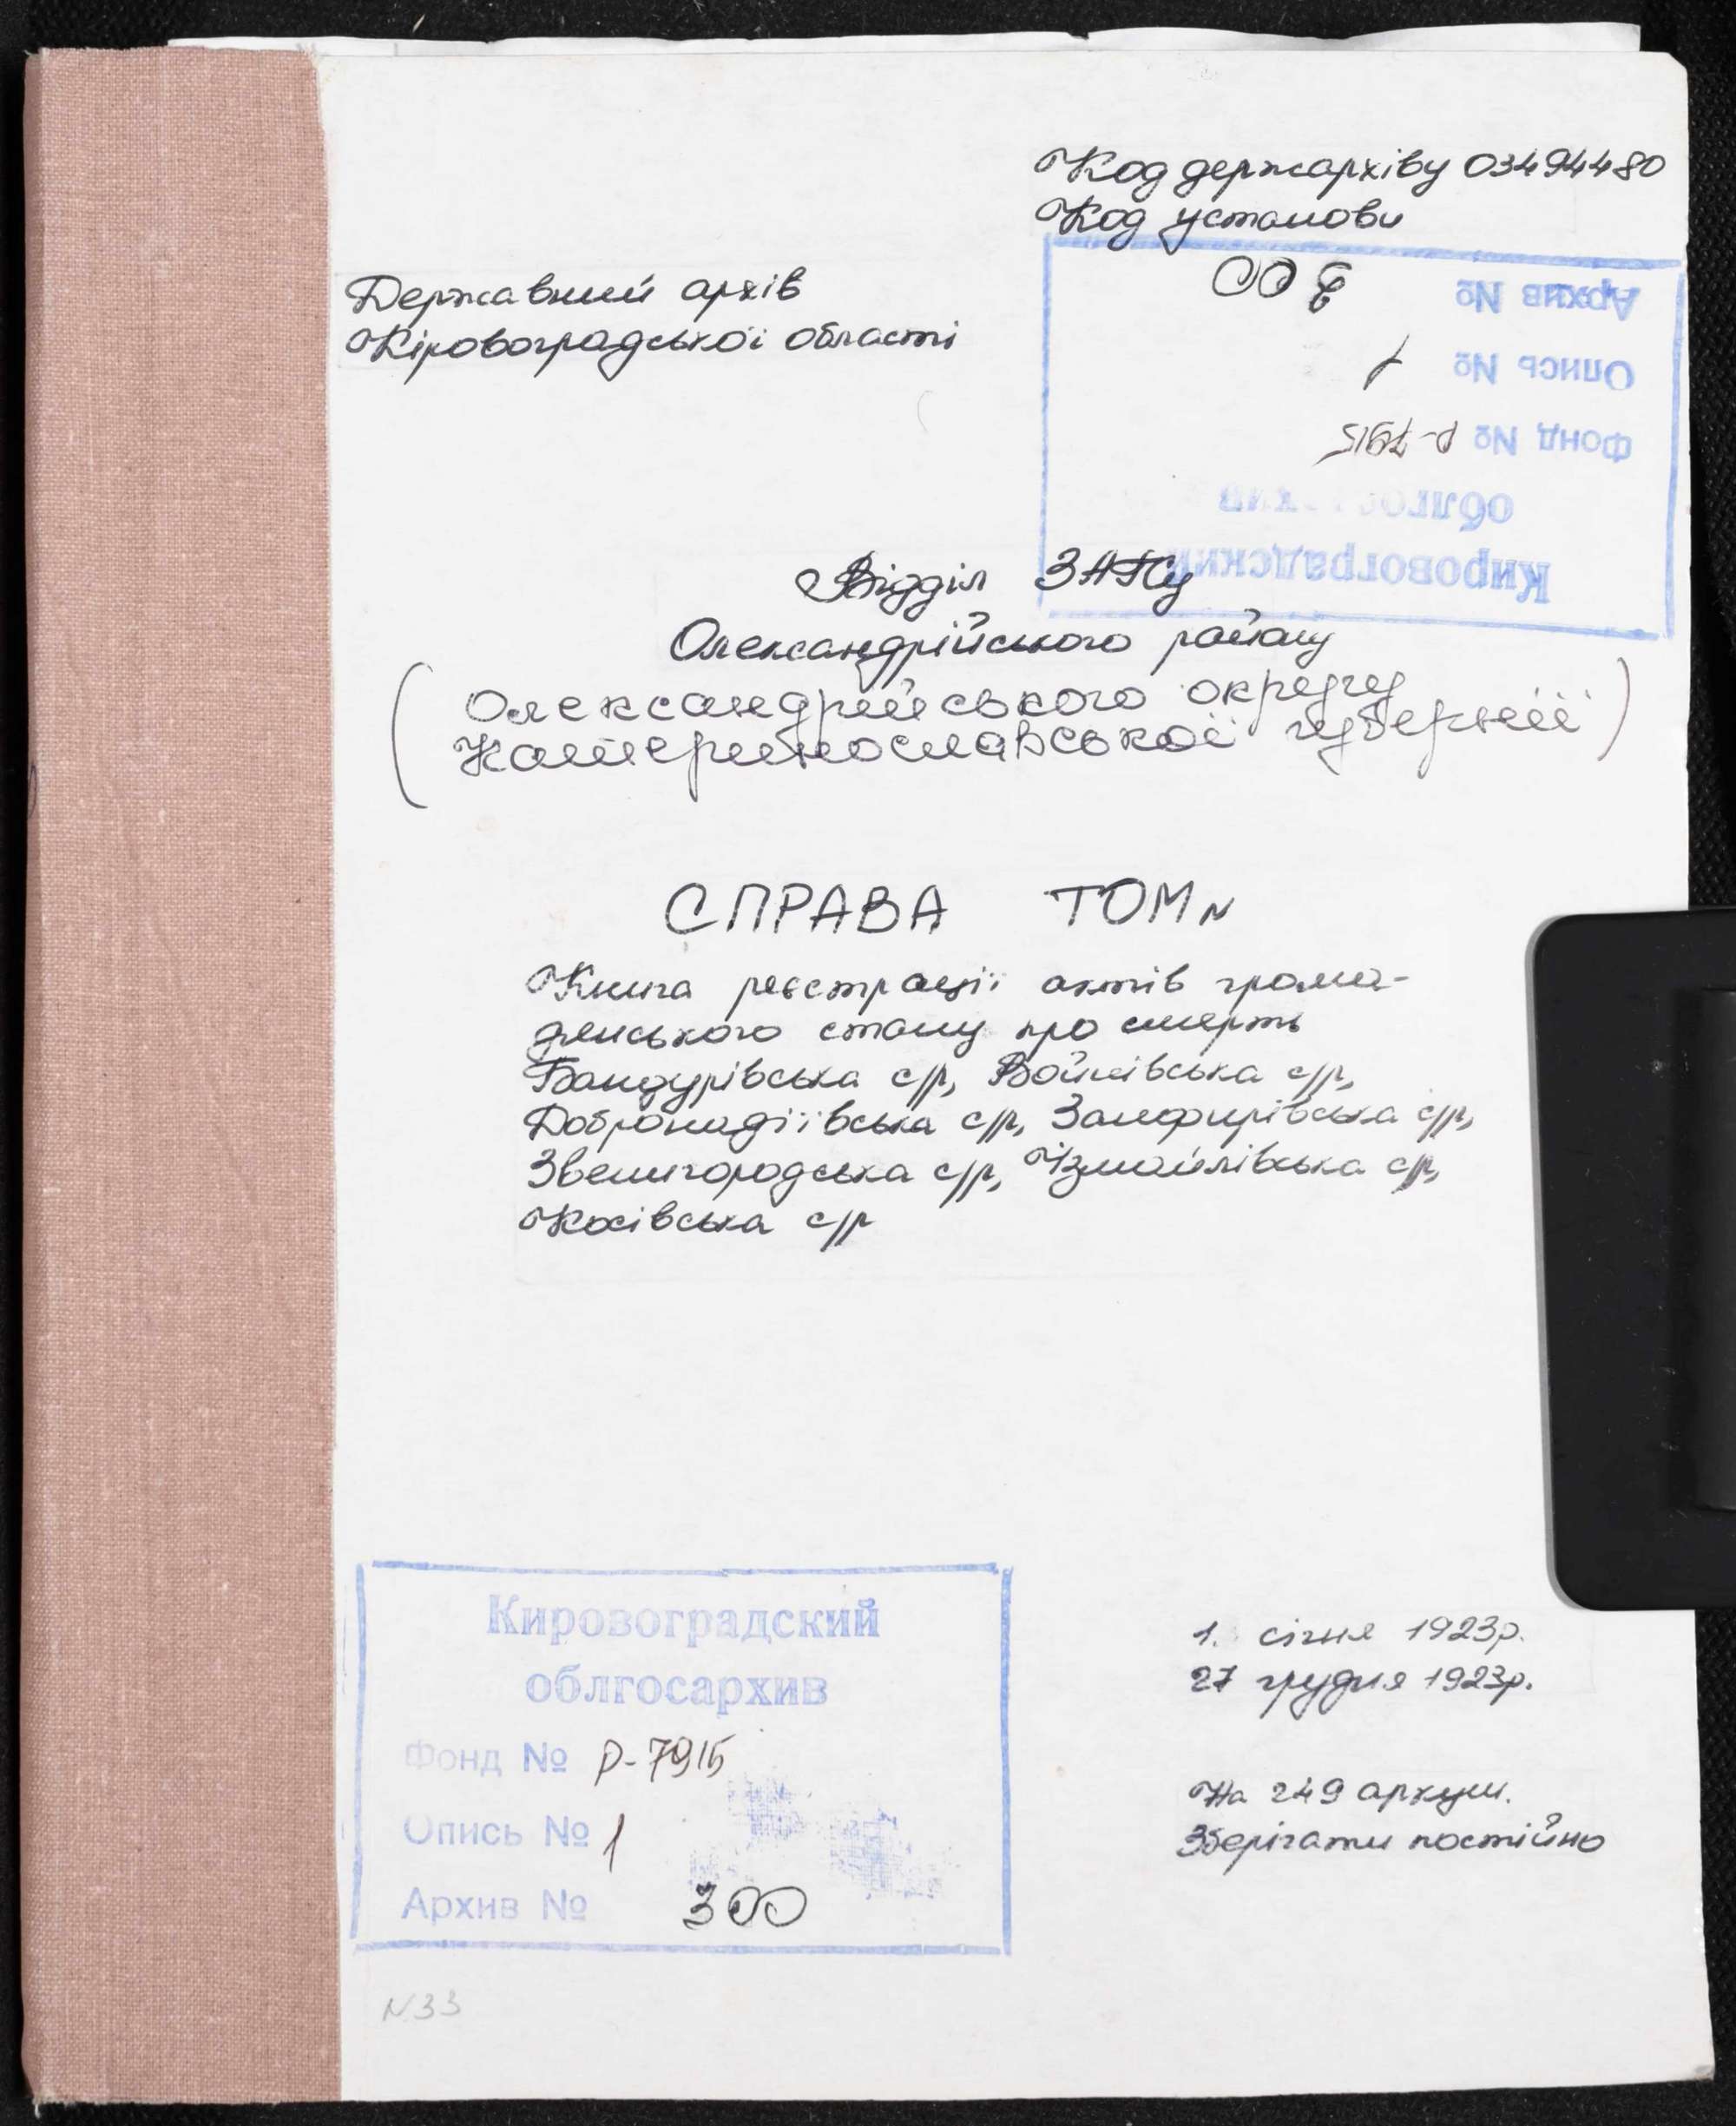 Код держархіву 03494480
Код установи
Державний архів
Кіровоградської області
Кировоградский
облгосархив
Фонд № Р-7915
Опись № 1
Архив № 300
Відділ ЗАГСу
Олександрійського району
(Олександрійського округу
Катеринославської губернії)
СПРАВА ТОМ №
Книга реєстрації актів грома-
дянського стану про смерть
Бандурівська с/р, Войнівська с/р,
Добронадіївська с/р, Замфирівська с/р,
Звенигородська с/р, Ізмайлівська с/р,
Косівська с/р
Кировоградский
облгосархив
Фонд № Р-7915
Опись № 1
Архив № 300
1. січня 1923р.
27 грудня 1923р.
На 249 аркуш.
Зберігати постійно
N33